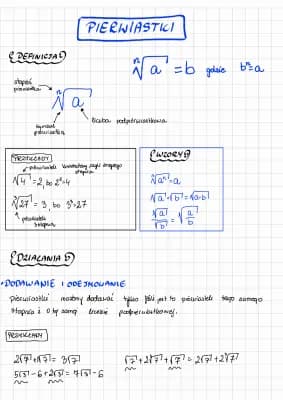 PIERWIASTKI
DEFINICJA
ⁿ√a = b gdzie bⁿ = a
stopień
pierwiastka
ⁿ√a
symbol
pierwiastka
liczba podpierwiastkowa
PRZYKŁADY
pierwiastek kwadratowy czyli drugiego
stopnia
√4 = 2, bo 2² = 4
³√27 = 3, bo 3³ = 27
pierwiastek
stopnia
WZORY
ⁿ√aⁿ = a
√a · √b = √a·b
√a/√b = √a/b
DZIAŁANIA
• DODAWANIE I ODEJMOWANIE
Pierwiastki możemy dodawać tylko jeśli jest to pierwiastek tego samego
stopnia i o tej samej liczbie podpierwiastkowej.
PRZYKŁADY
2√7 + √7 = 3√7
√7 + 2√7 + √7 = 2√7 + 2√7
5√3 - 6 + 2√3 = 7√3 - 6